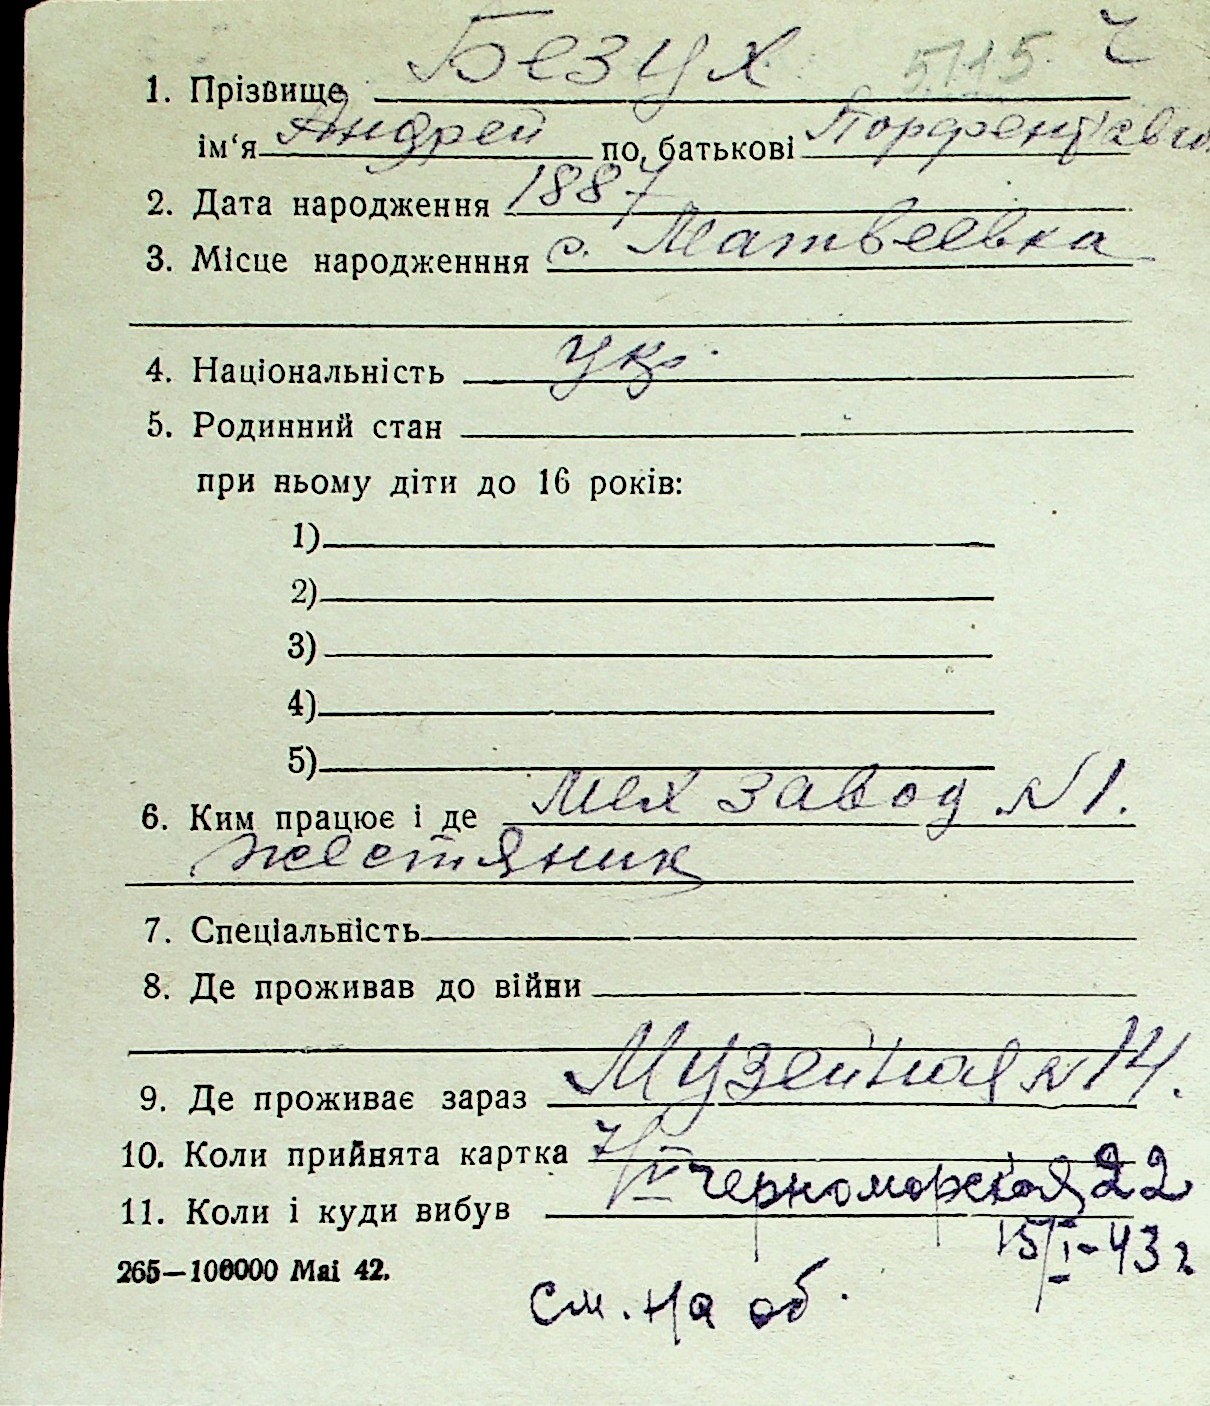 1. Прізвище Безух 5115. Ч
ім'я Андрей по батькові
2. Дата народження 1887
3. Місце народженння с. Матвеевка
4. Національність Укр.
5. Родинний стан
при ньому діти до 16 років:
1)
2)
3)
4)
5)
6. Ким працює і де Мех завод N1.
жестяник
7. Спеціальність
8. Де проживав до війни
9. Де проживає зараз Музейная N 14.
10. Коли прийнята картка 7/IV
11. Коли і куди вибув Черноморская 22
15/I-43 г
265—100000 Mai 42.
См. на об.